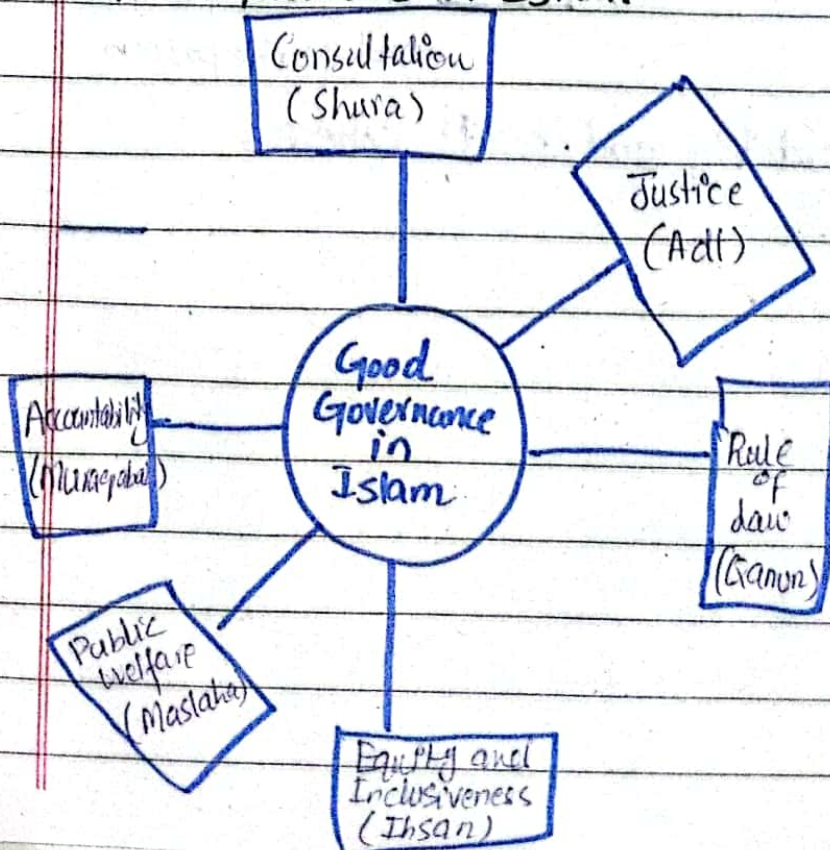 Islam
Consultation
(Shura)
Justice
(Adl)
Good
Governance
in
Islam
Accountability
(Muraqabah)
Rule
of
Law
(Qanun)
Public
welfare
(Maslaha)
Equity and
Inclusiveness
(Ihsan)